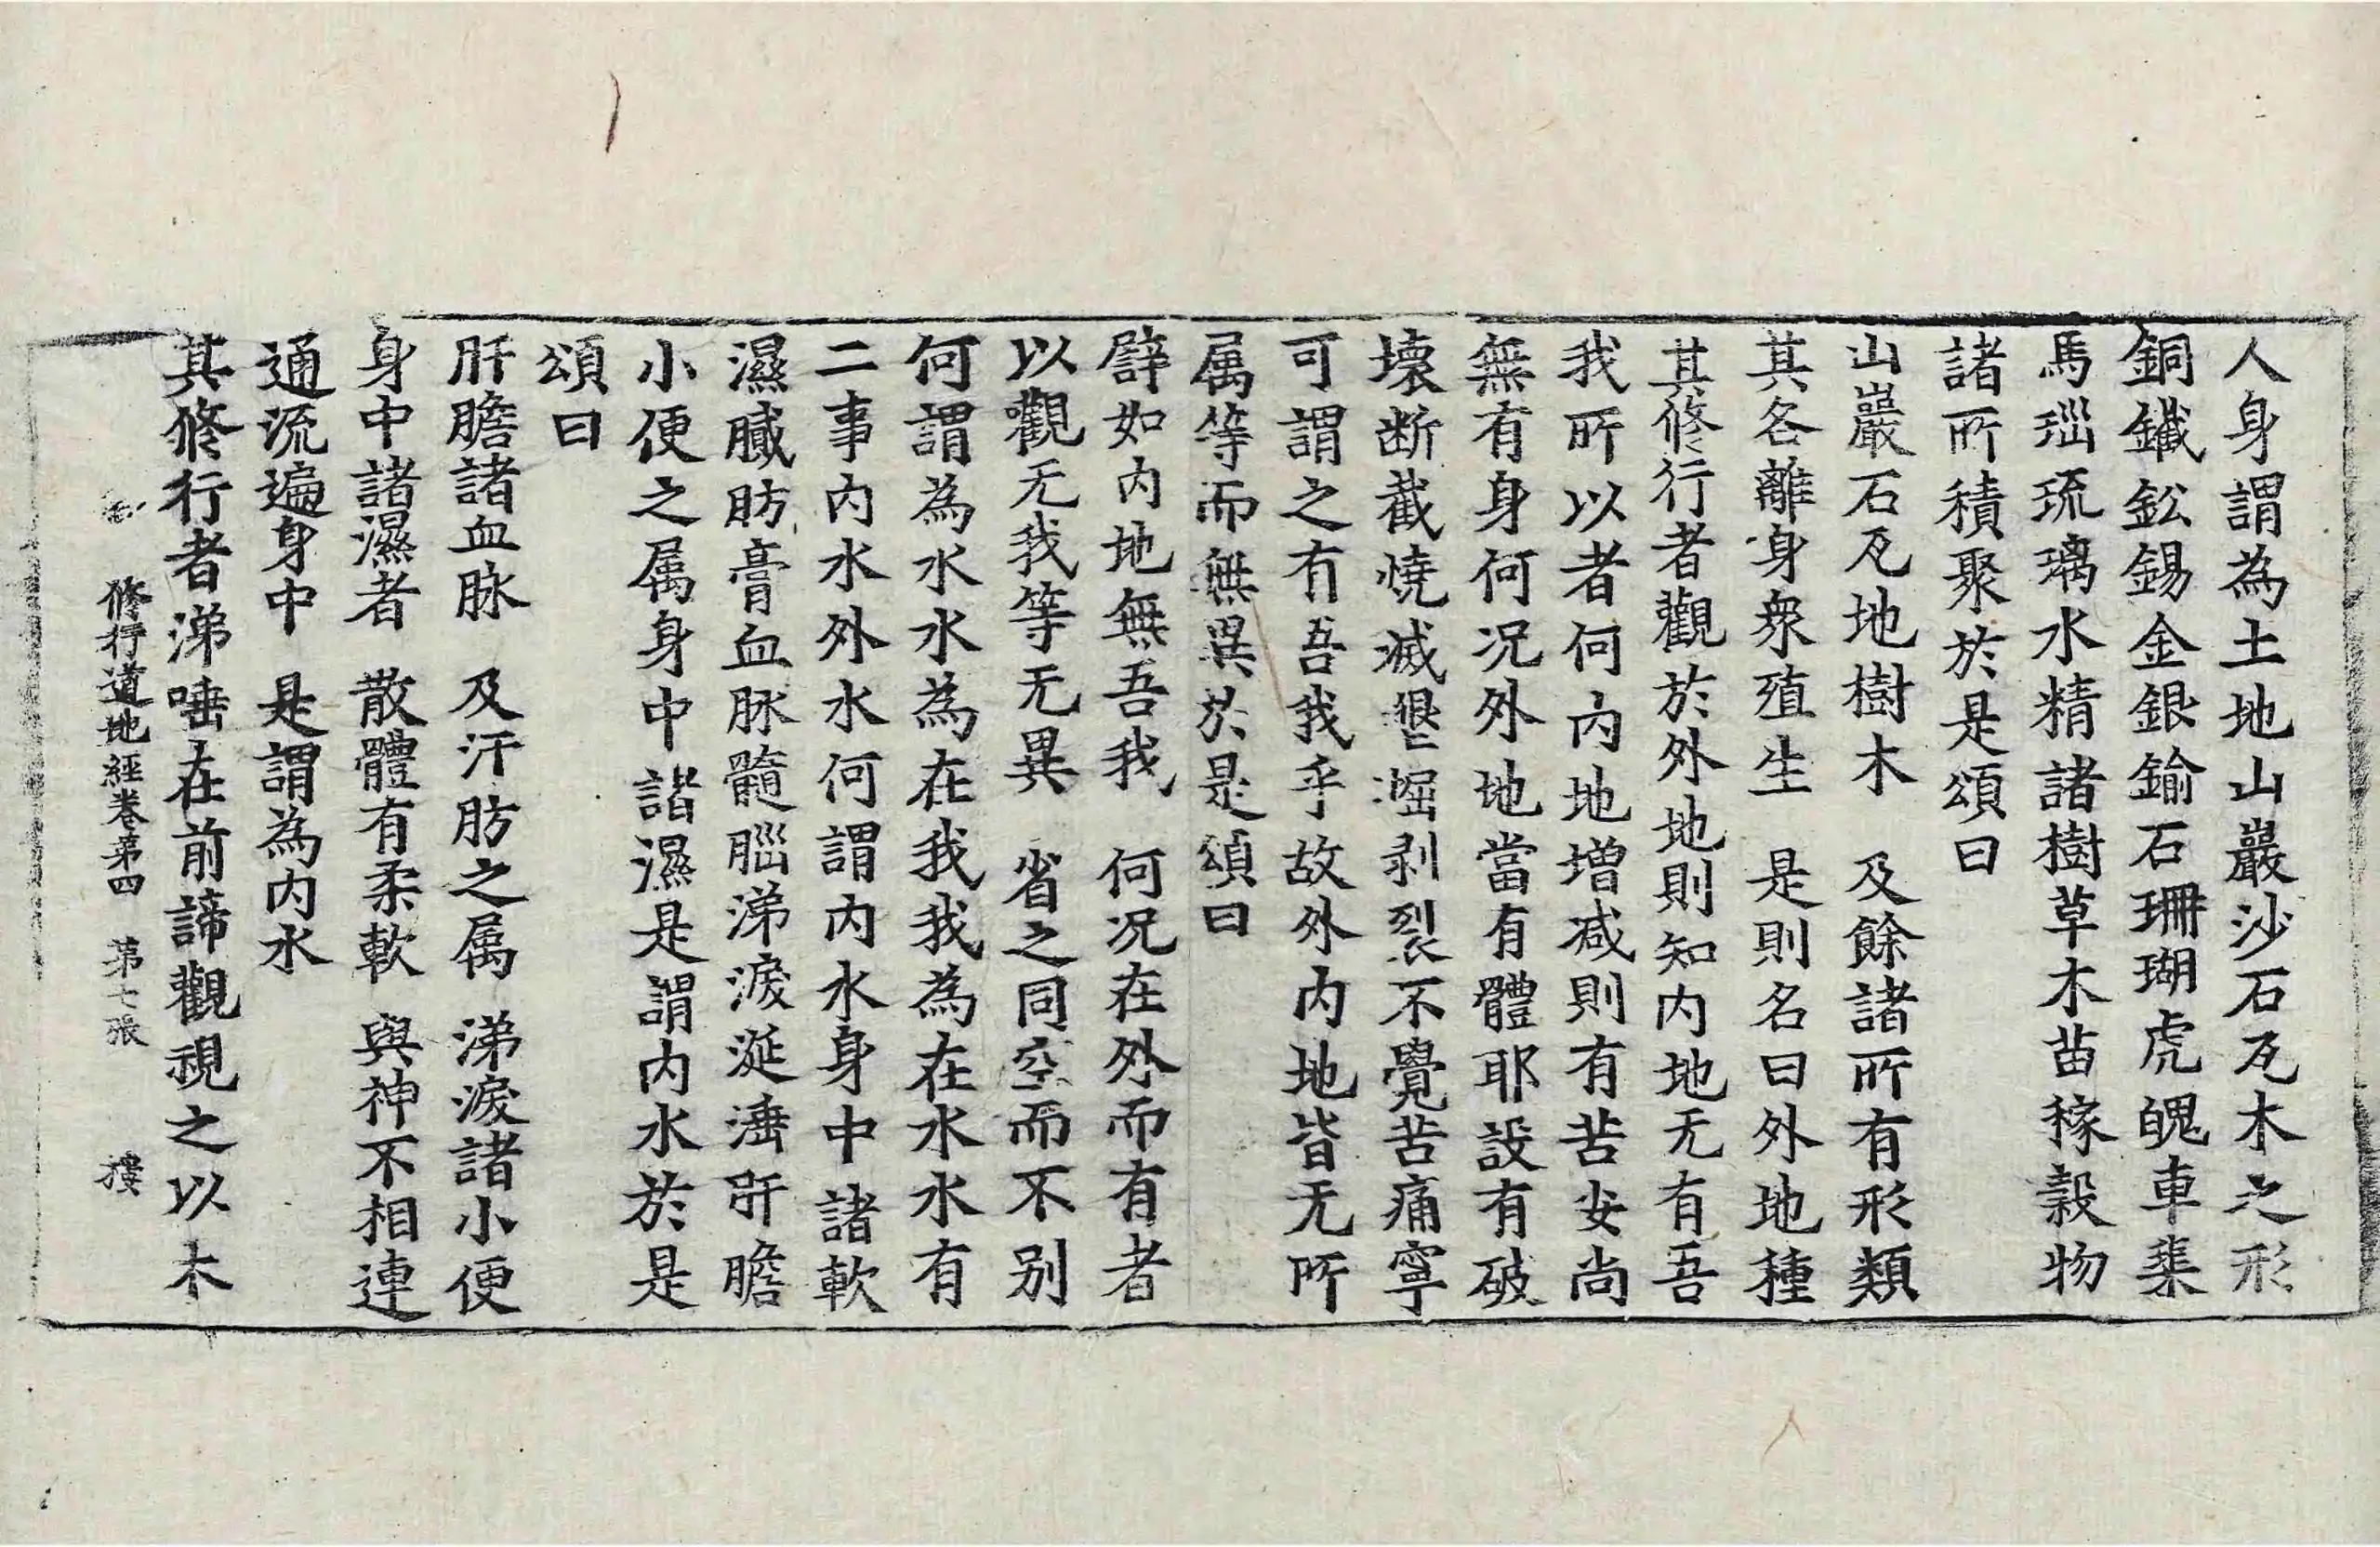 人身謂為土地山巖沙石瓦木之形
銅鐵鈆錫金銀鍮石珊瑚虎魄車𤦲
馬瑙琉璃水精諸樹草木苗稼穀物
諸所積聚於是頌曰
山巖石瓦地樹木　及餘諸所有形類
其各離身衆殖生　是則名曰外地種
其修行者觀於外地則知内地无有吾
我所以者何内地増减則有苦安尚
無有身何况外地當有體耶設有破
壊断截燒滅墾掘剥裂不覺苦痛寧
可謂之有吾我乎故外内地皆无所
属等而無異於是頌曰
譬如内地無吾我　何况在外而有者
以觀无我等无異　省之同空而不别
何謂為水水為在我我為在水水有
二事内水外水何謂内水身中諸軟
濕膩肪膏血脉髓腦涕淚涎𣹢肝膽
小便之属身中諸濕是謂内水於是
頌曰
肝膽諸血脉　及汗肪之属　涕淚諸小便
身中諸濕者　散體有柔軟　與神不相連
通流遍身中　是謂為内水
其修行者涕唾在前諦觀視之以木
修行道地經卷第四　第七張